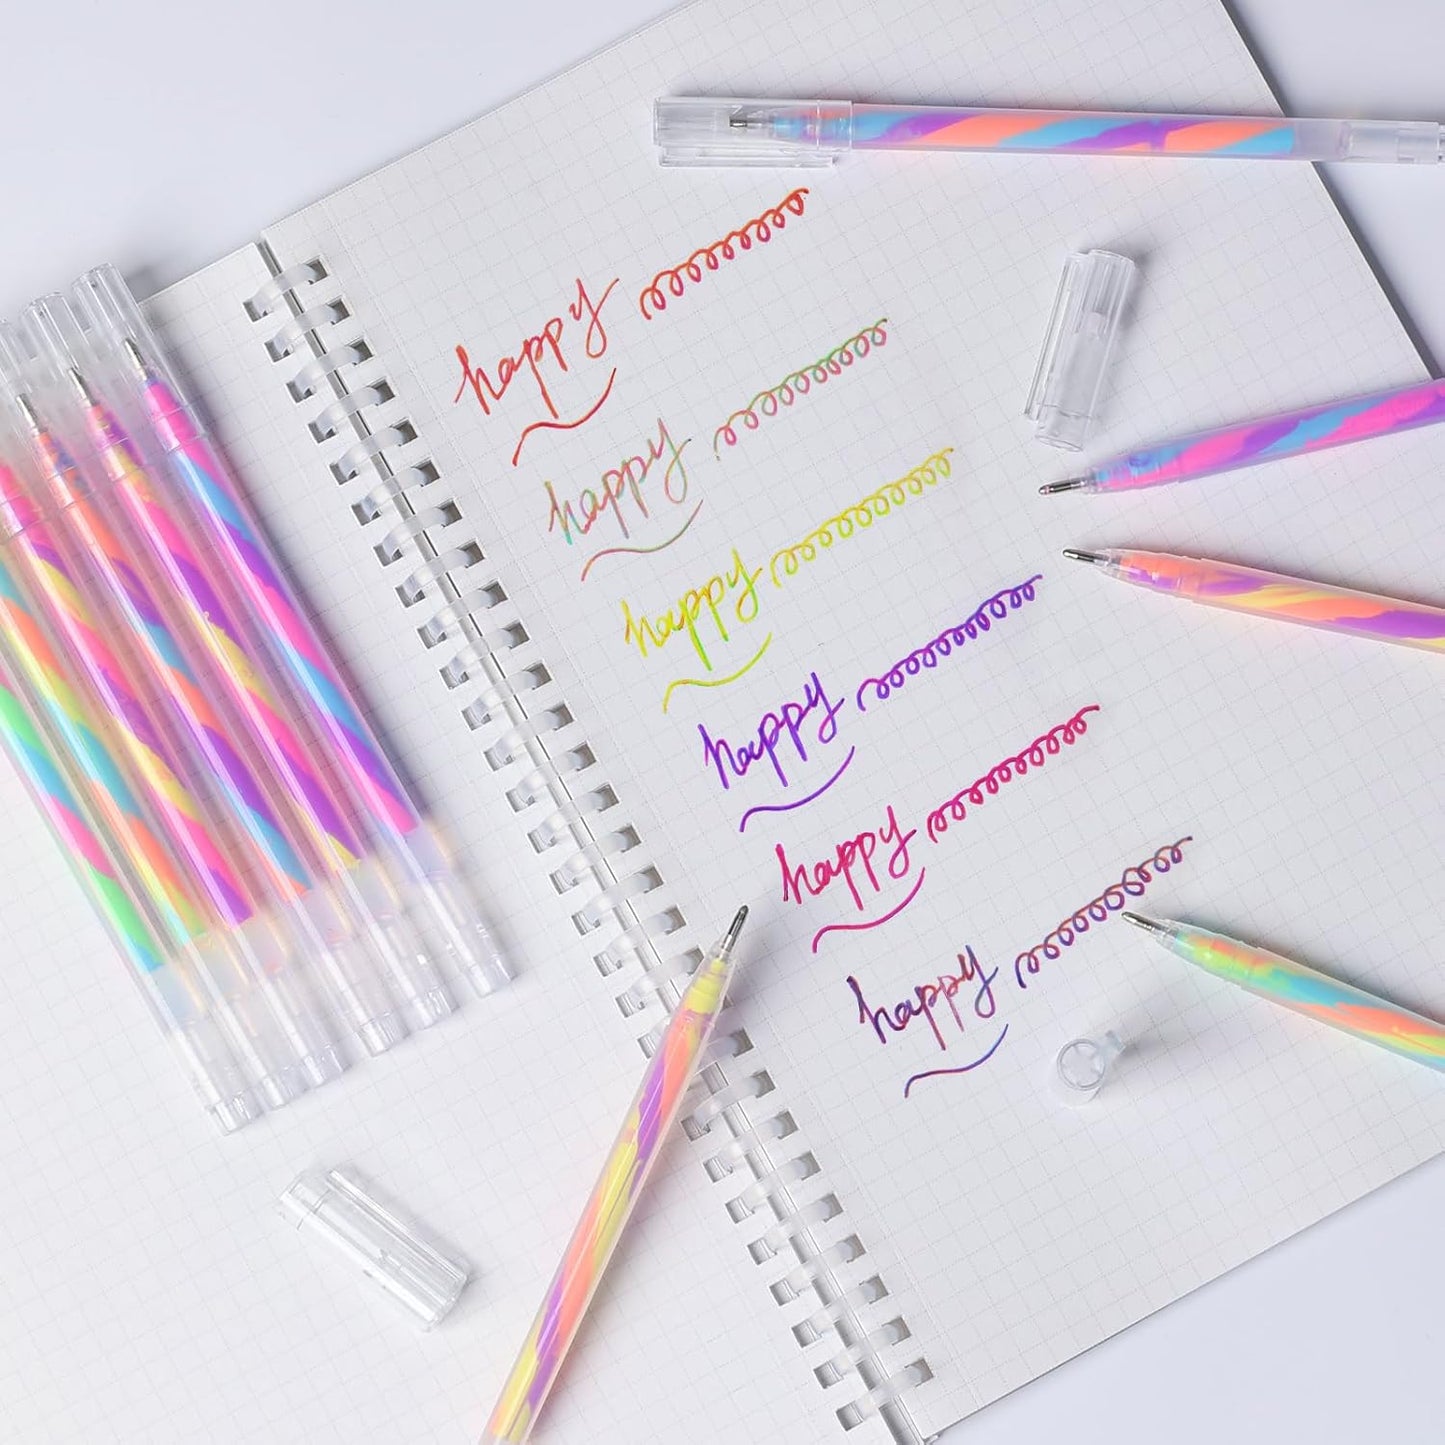 happy
happy
happy
happy
happy
happy